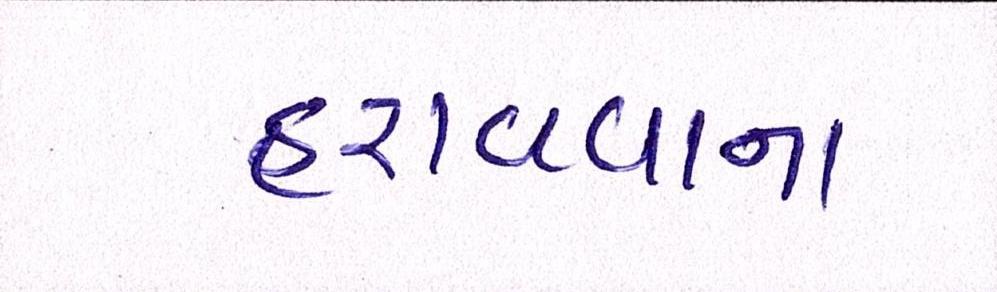 હરાવવાના